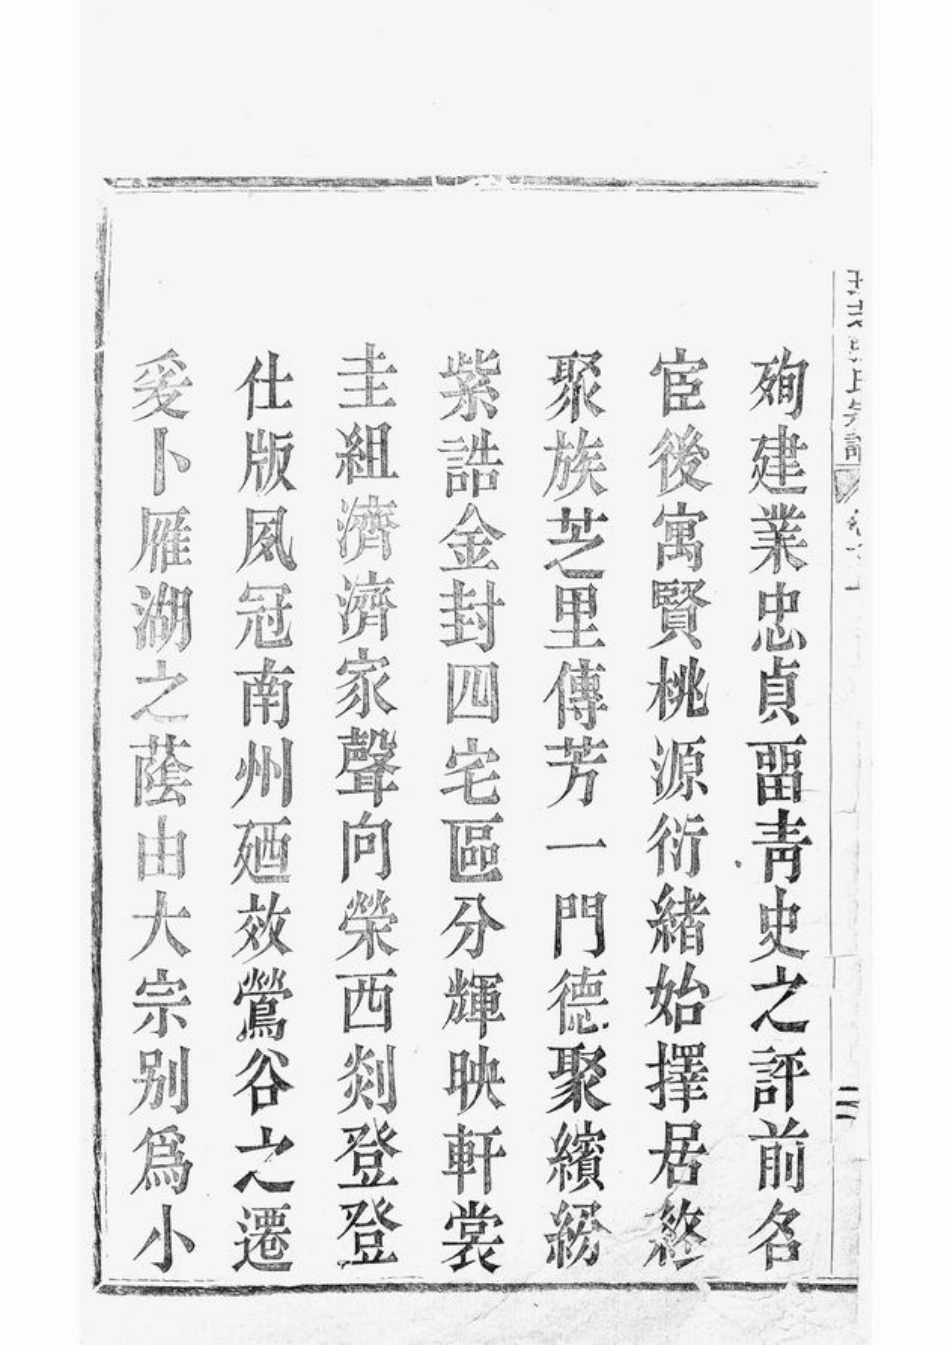 殉建業忠貞畱青史之評前名
宦後寓賢桃源衍緒始擇居終
聚族芝里傳芳一門德聚繽紛
紫誥金封四宅區分輝映軒裳
圭組濟濟家聲向榮西剡登登
仕版風冠南州廼效鶯谷之遷
爰卜雁湖之蔭由大宗別爲小